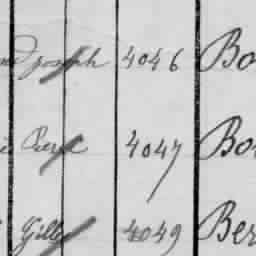 nd joseph 4046 Bo
is Pierre 4047 Bo
Gilles 4049 Ber